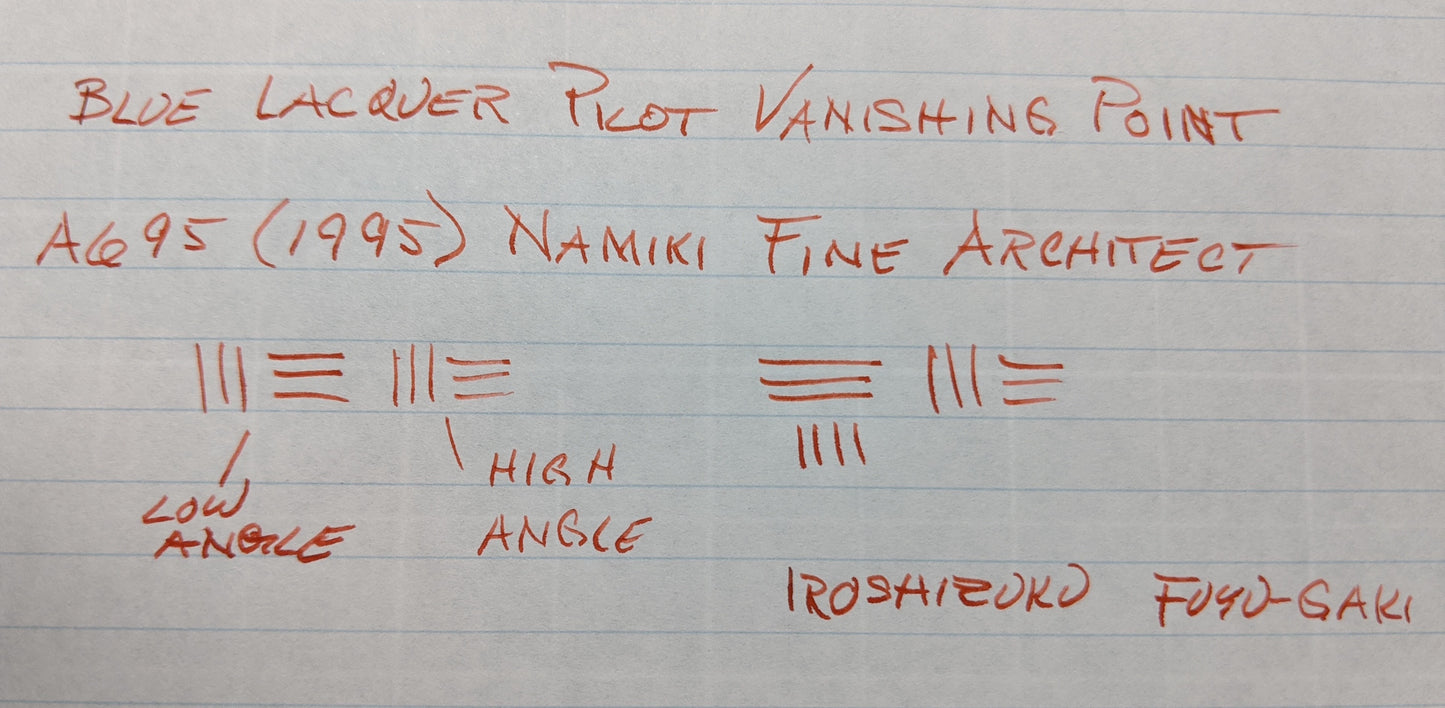 BLUE LACQUER PILOT VANISHING POINT
A695 (1995) NAMIKI FINE ARCHITECT
LOW
ANGLE
HIGH
ANGLE
IROSHIZUKU FUYU-GAKI